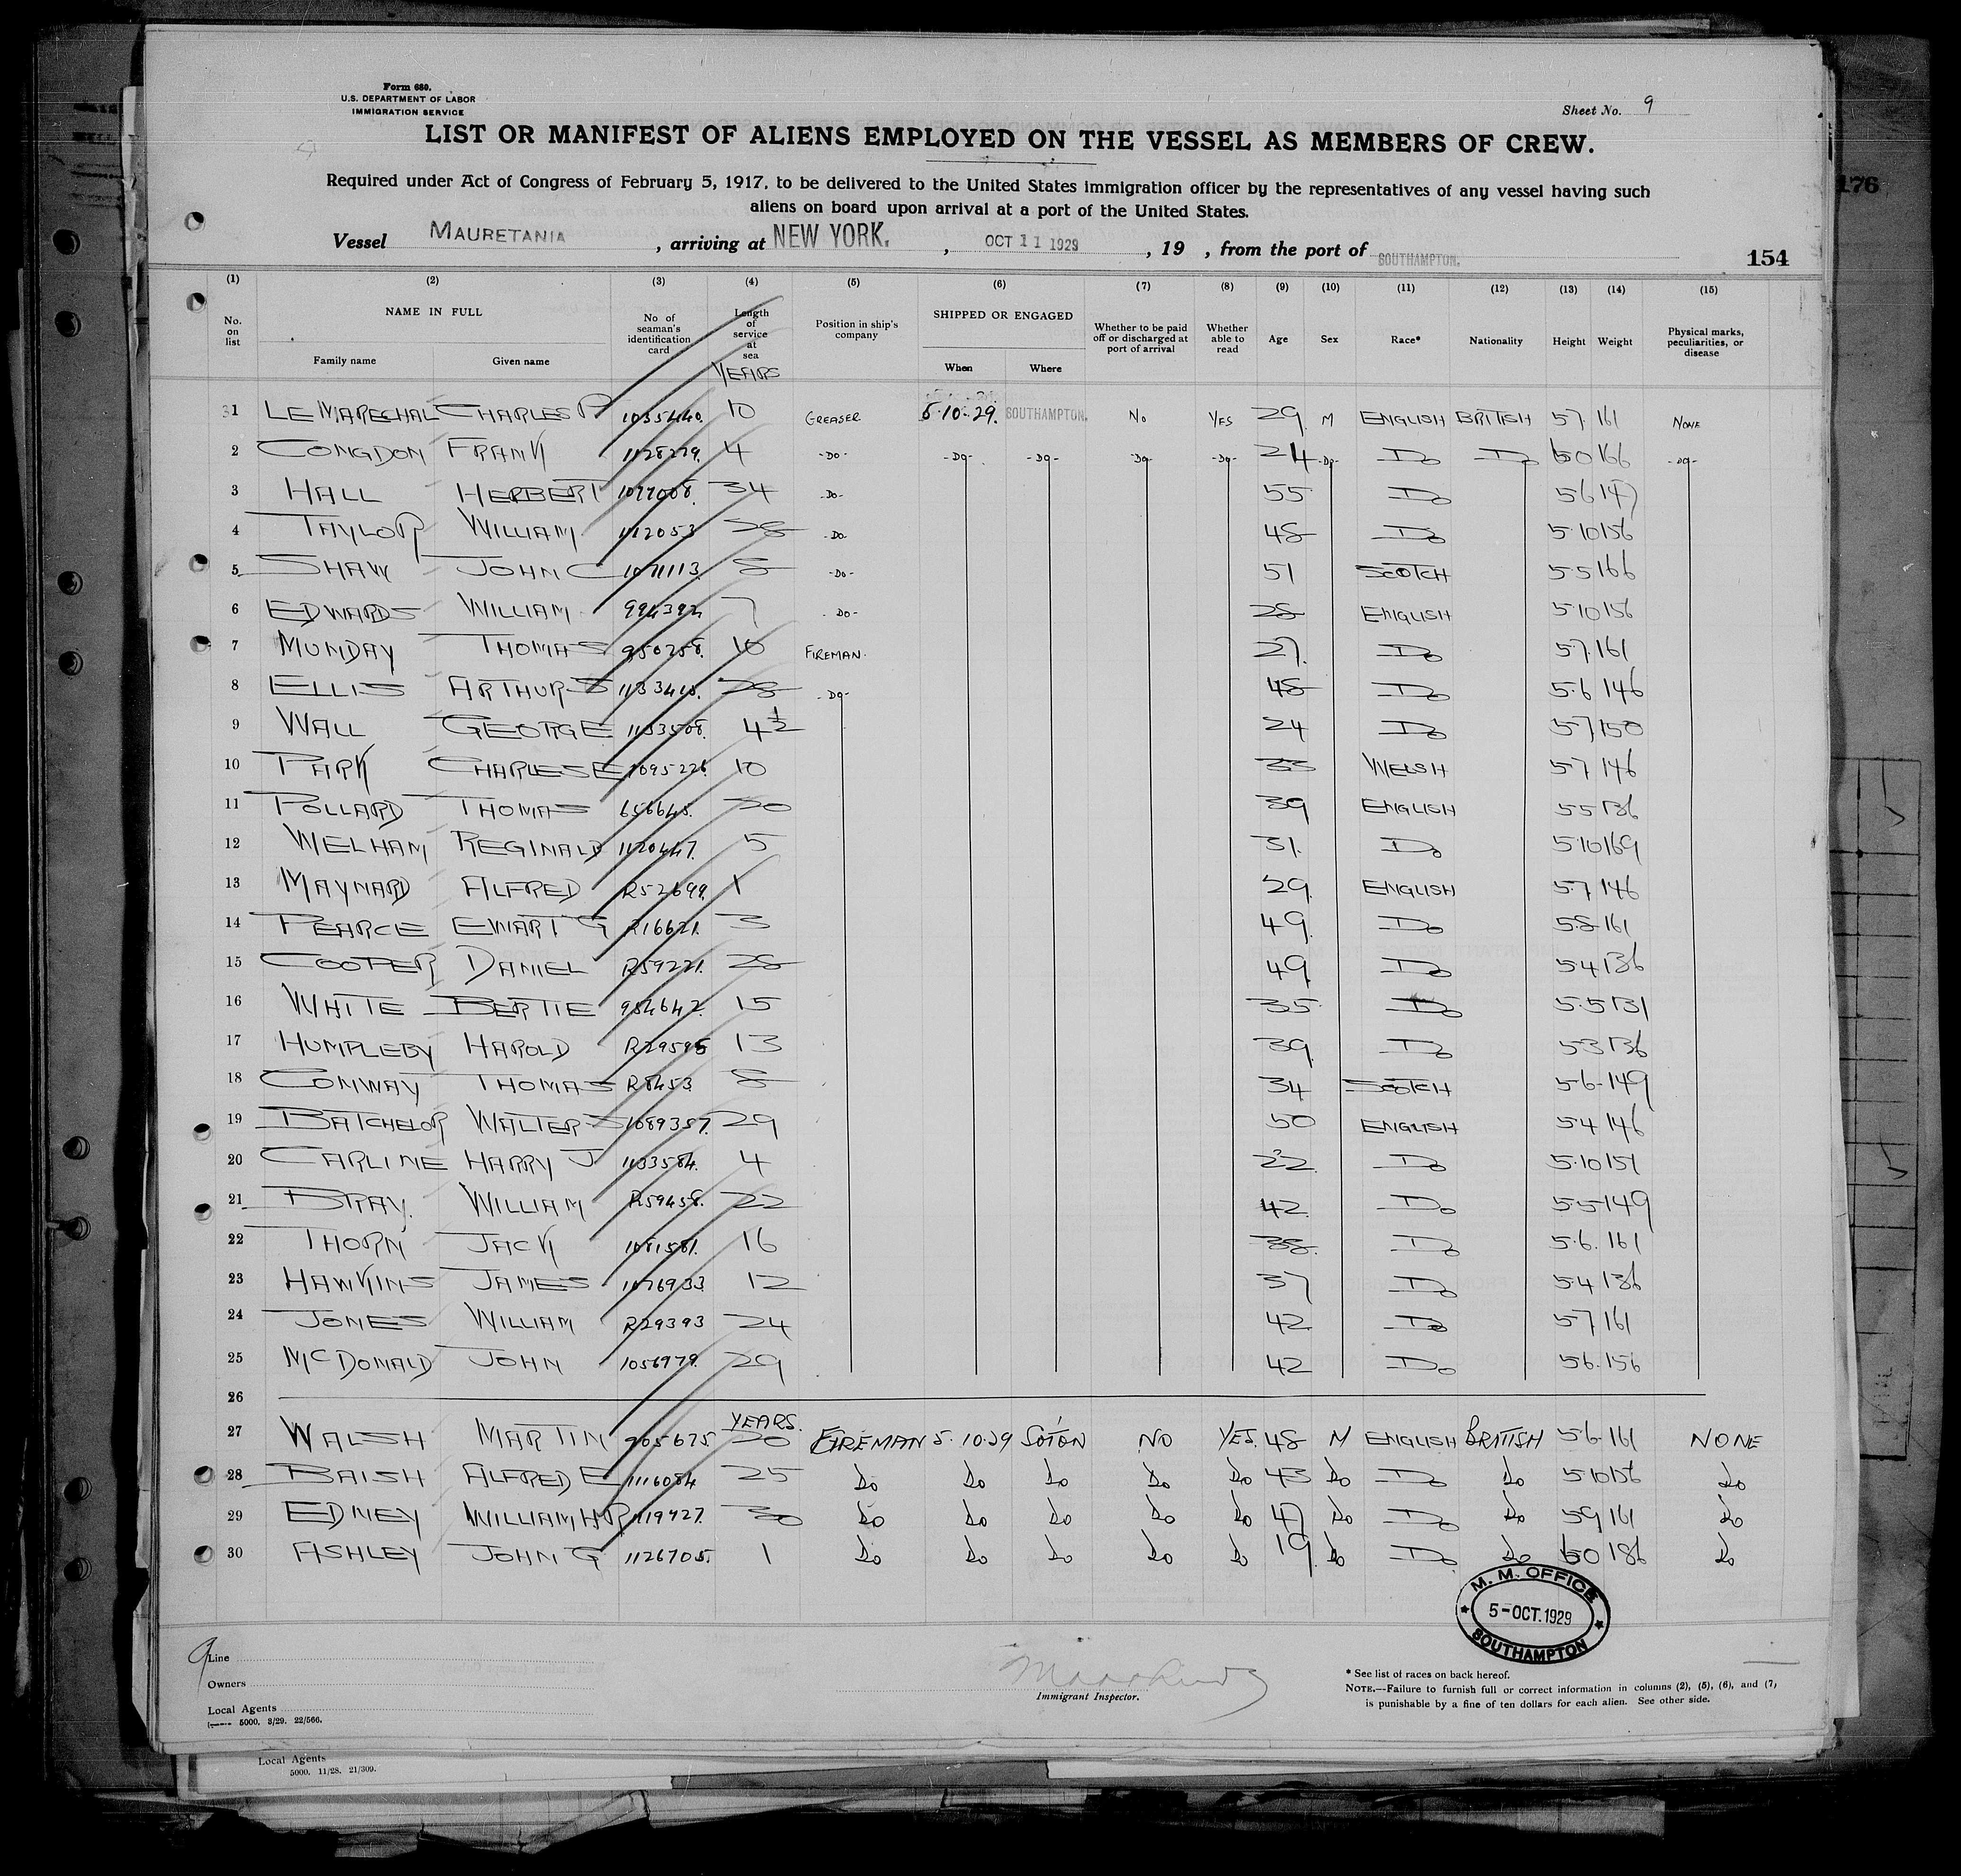 Form 680.
U.S. DEPARTMENT OF LABOR
IMMIGRATION SERVICE
Sheet No. 9
LIST OR MANIFEST OF ALIENS EMPLOYED ON THE VESSEL AS MEMBERS OF CREW.
Required under Act of Congress of February 5, 1917, to be delivered to the United States immigration officer by the representatives of any vessel having such
aliens on board upon arrival at a port of the United States.
176
Vessel MAURETANIA, arriving at NEW YORK., OCT 11 1929, 19 , from the port of SOUTHAMPTON.
154
(1) (2) (3) (4) (5) (6) (7) (8) (9) (10) (11) (12) (13) (14) (15)
No. on list NAME IN FULL Family name Given name No. of seaman's identification card Length of service at sea YEARS Position in ship's company SHIPPED OR ENGAGED When Where Whether to be paid off or discharged at port of arrival Whether able to read Age Sex Race* Nationality Height Weight Physical marks, peculiarities, or disease
1 LE MARECHAL CHARLES P 1035440. 10 GREASER 5.10.29. SOUTHAMPTON. NO YES 29 M ENGLISH BRITISH 5.7. 161 NONE
2 CONGDON FRANK 1128279. 4 -DO- -DO- -DO- -DO- -DO- 24 -DO- DO DO 6.0 166 -DO-
3 HALL HERBERT 34 -DO- 55 DO 5.6 147
4 TAYLOR WILLIAM 112053 28 -DO- 48 DO 5.10 156
5 SHAW JOHN C 1071113. 8 -DO- 51 SCOTCH 5.5 166
6 EDWARDS WILLIAM 994392 7 -DO- 28 ENGLISH 5.10 156
7 MUNDAY THOMAS 950258. 10 FIREMAN. 27. DO 5.7. 161
8 ELLIS ARTHUR S 1133418. 28 -DO- 48 DO 5.6 146
9 WALL GEORGE 1133508. 4½ 24 DO 5.7 150
10 PARK CHARLES E 1095226. 10 33 WELSH 5.7 146
11 POLLARD THOMAS 656645. 20 39 ENGLISH 5.5 136
12 WELHAM REGINALD 1120447. 5 31. DO 5.10 169
13 MAYNARD ALFRED R52699. 1 29. ENGLISH 5.7 146
14 PEARCE EWART G R16621. 3 49. DO 5.8 161
15 COOPER DANIEL R59221. 28 49 DO 5.4 136
16 WHITE BERTIE 954642. 15 35. DO 5.5 131
17 HUMPLEBY HAROLD R29595 13 39. DO 5.3 136
18 CONWAY THOMAS R8453 8 34 SCOTCH 5.6 149
19 BATCHELOR WALTER S 1089357. 29 50 ENGLISH 5.4 146
20 CARLINE HARRY J 1133584. 4 22. DO 5.10 151
21 BRAY. WILLIAM R59458. 22 42. DO 5.5 149
22 THORN JACK 1081581. 16 38. DO 5.6. 161
23 HAWKINS JAMES 1076933. 12 37 DO 5.4 136
24 JONES WILLIAM R29393 24 42 DO 5.7 161
25 McDONALD JOHN 1056979. 29 42 DO 5.6. 156
26
YEARS.
27 WALSH MARTIN 965675 20 FIREMAN 5.10.29 SOTON NO YES. 48 M ENGLISH BRITISH 5.6 161 NONE
28 BAISH ALFRED E 1116084 25 Do Do Do Do Do 43 Do DO Do 5.10 156 Do
29 EDNEY WILLIAM H R 1119427. 30 Do Do Do Do Do 47 Do DO Do 5.9 161 Do
30 ASHLEY JOHN G 1126705. 1 Do Do Do Do Do 19. Do DO Do 6.0 186 Do
M. M. OFFICE
5-OCT.1929
SOUTHAMPTON
9
Line
Owners
Local Agents
5000. 3/29. 22/566.
Immigrant Inspector.
* See list of races on back hereof.
NOTE.—Failure to furnish full or correct information in columns (2), (5), (6), and (7)
is punishable by a fine of ten dollars for each alien. See other side.
Local Agents
5000. 11/28. 21/309.